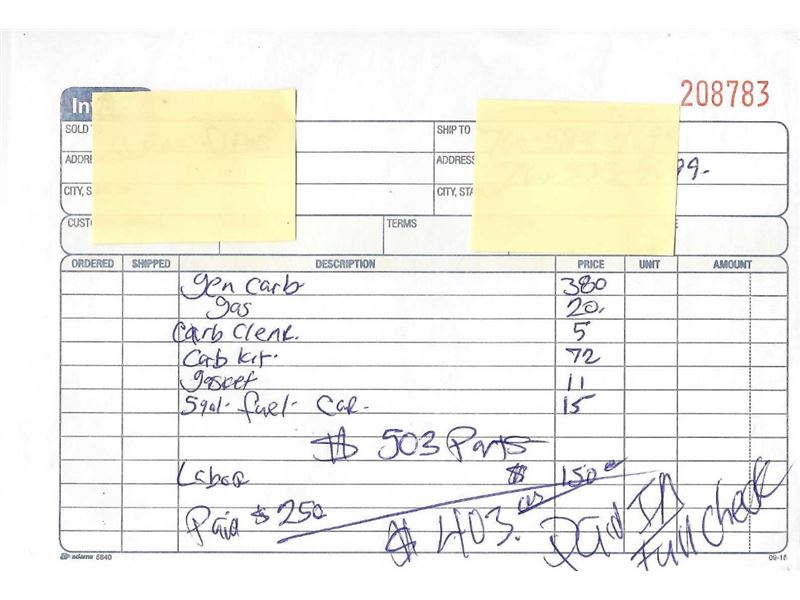 208783
SHIP TO
ADDRESS
99.
CITY, S
TERMS
ORDERED SHIPPED DESCRIPTION PRICE UNIT AMOUNT
gen carb 380
gas 20.
Carb Clenr. 5
Carb kit. 72
gasket 11
5gal. fuel. Can. 15
$ 503 Parts
Labor $ 150
Paid $ 250
$ 403.
Paid IN
Full Check
adams 5840